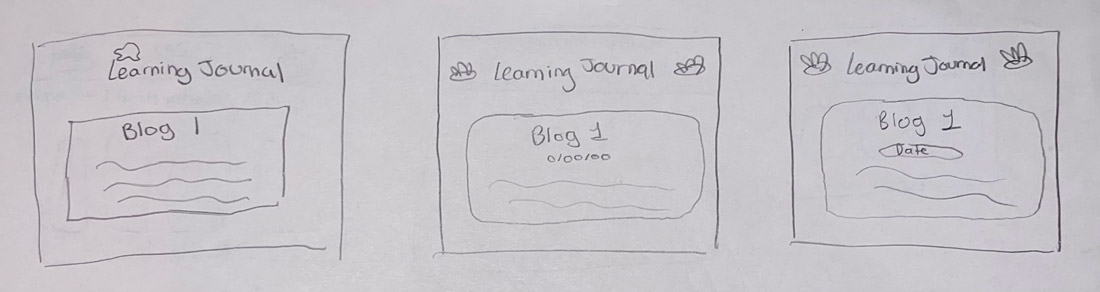 Learning Journal
Blog 1
Learning Journal
Blog 1
0/00/00
Learning Journal
Blog 1
Date